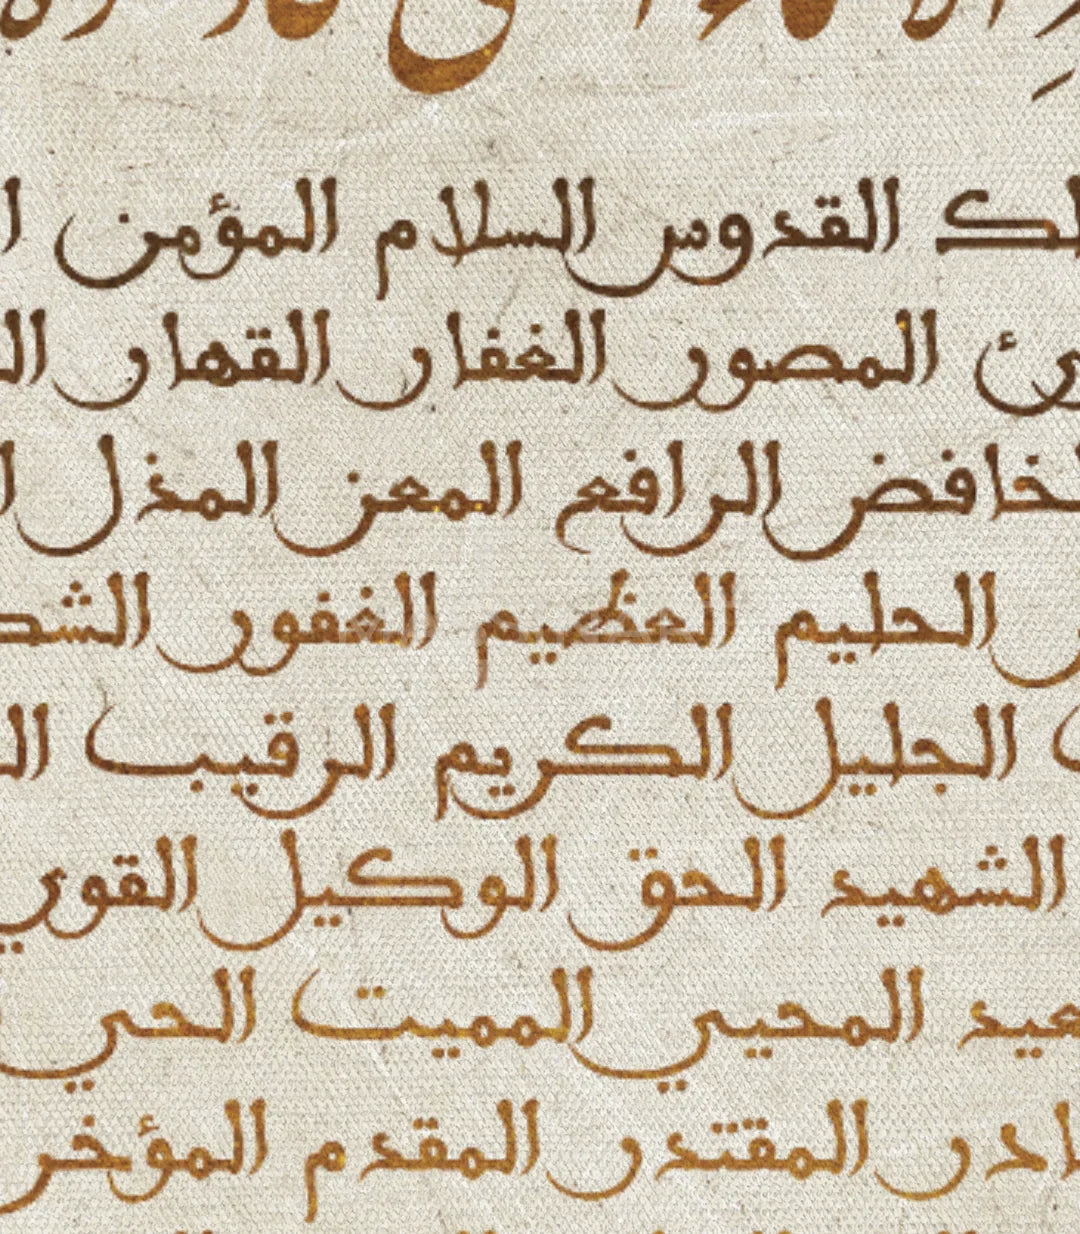 القدوس السلام المؤمن
المصور الغفار القهار
الخافض الرافع المعز المذل
الحليم العظيم الغفور
الجليل الكريم الرقيب
الشهيد الحق الوكيل القوي
المحيي المميت الحي
المقتدر المقدم المؤخر